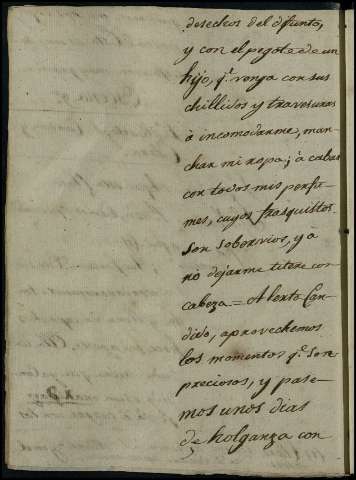 desechos del difunto,
y con el pegote de un
hijo, q.e venga con sus
chillidos y travesuras
à incomodarme, man-
char mi ropa; à cabar
con todos mis perfu-
mes, cuyos frasquistos
son sobervios, y à
no dejarme titere con
cabeza = Alerto Can-
dido, aprovechemos
los momentos q.e son
preciosos, y pase-
mos unos dias
de holganza con